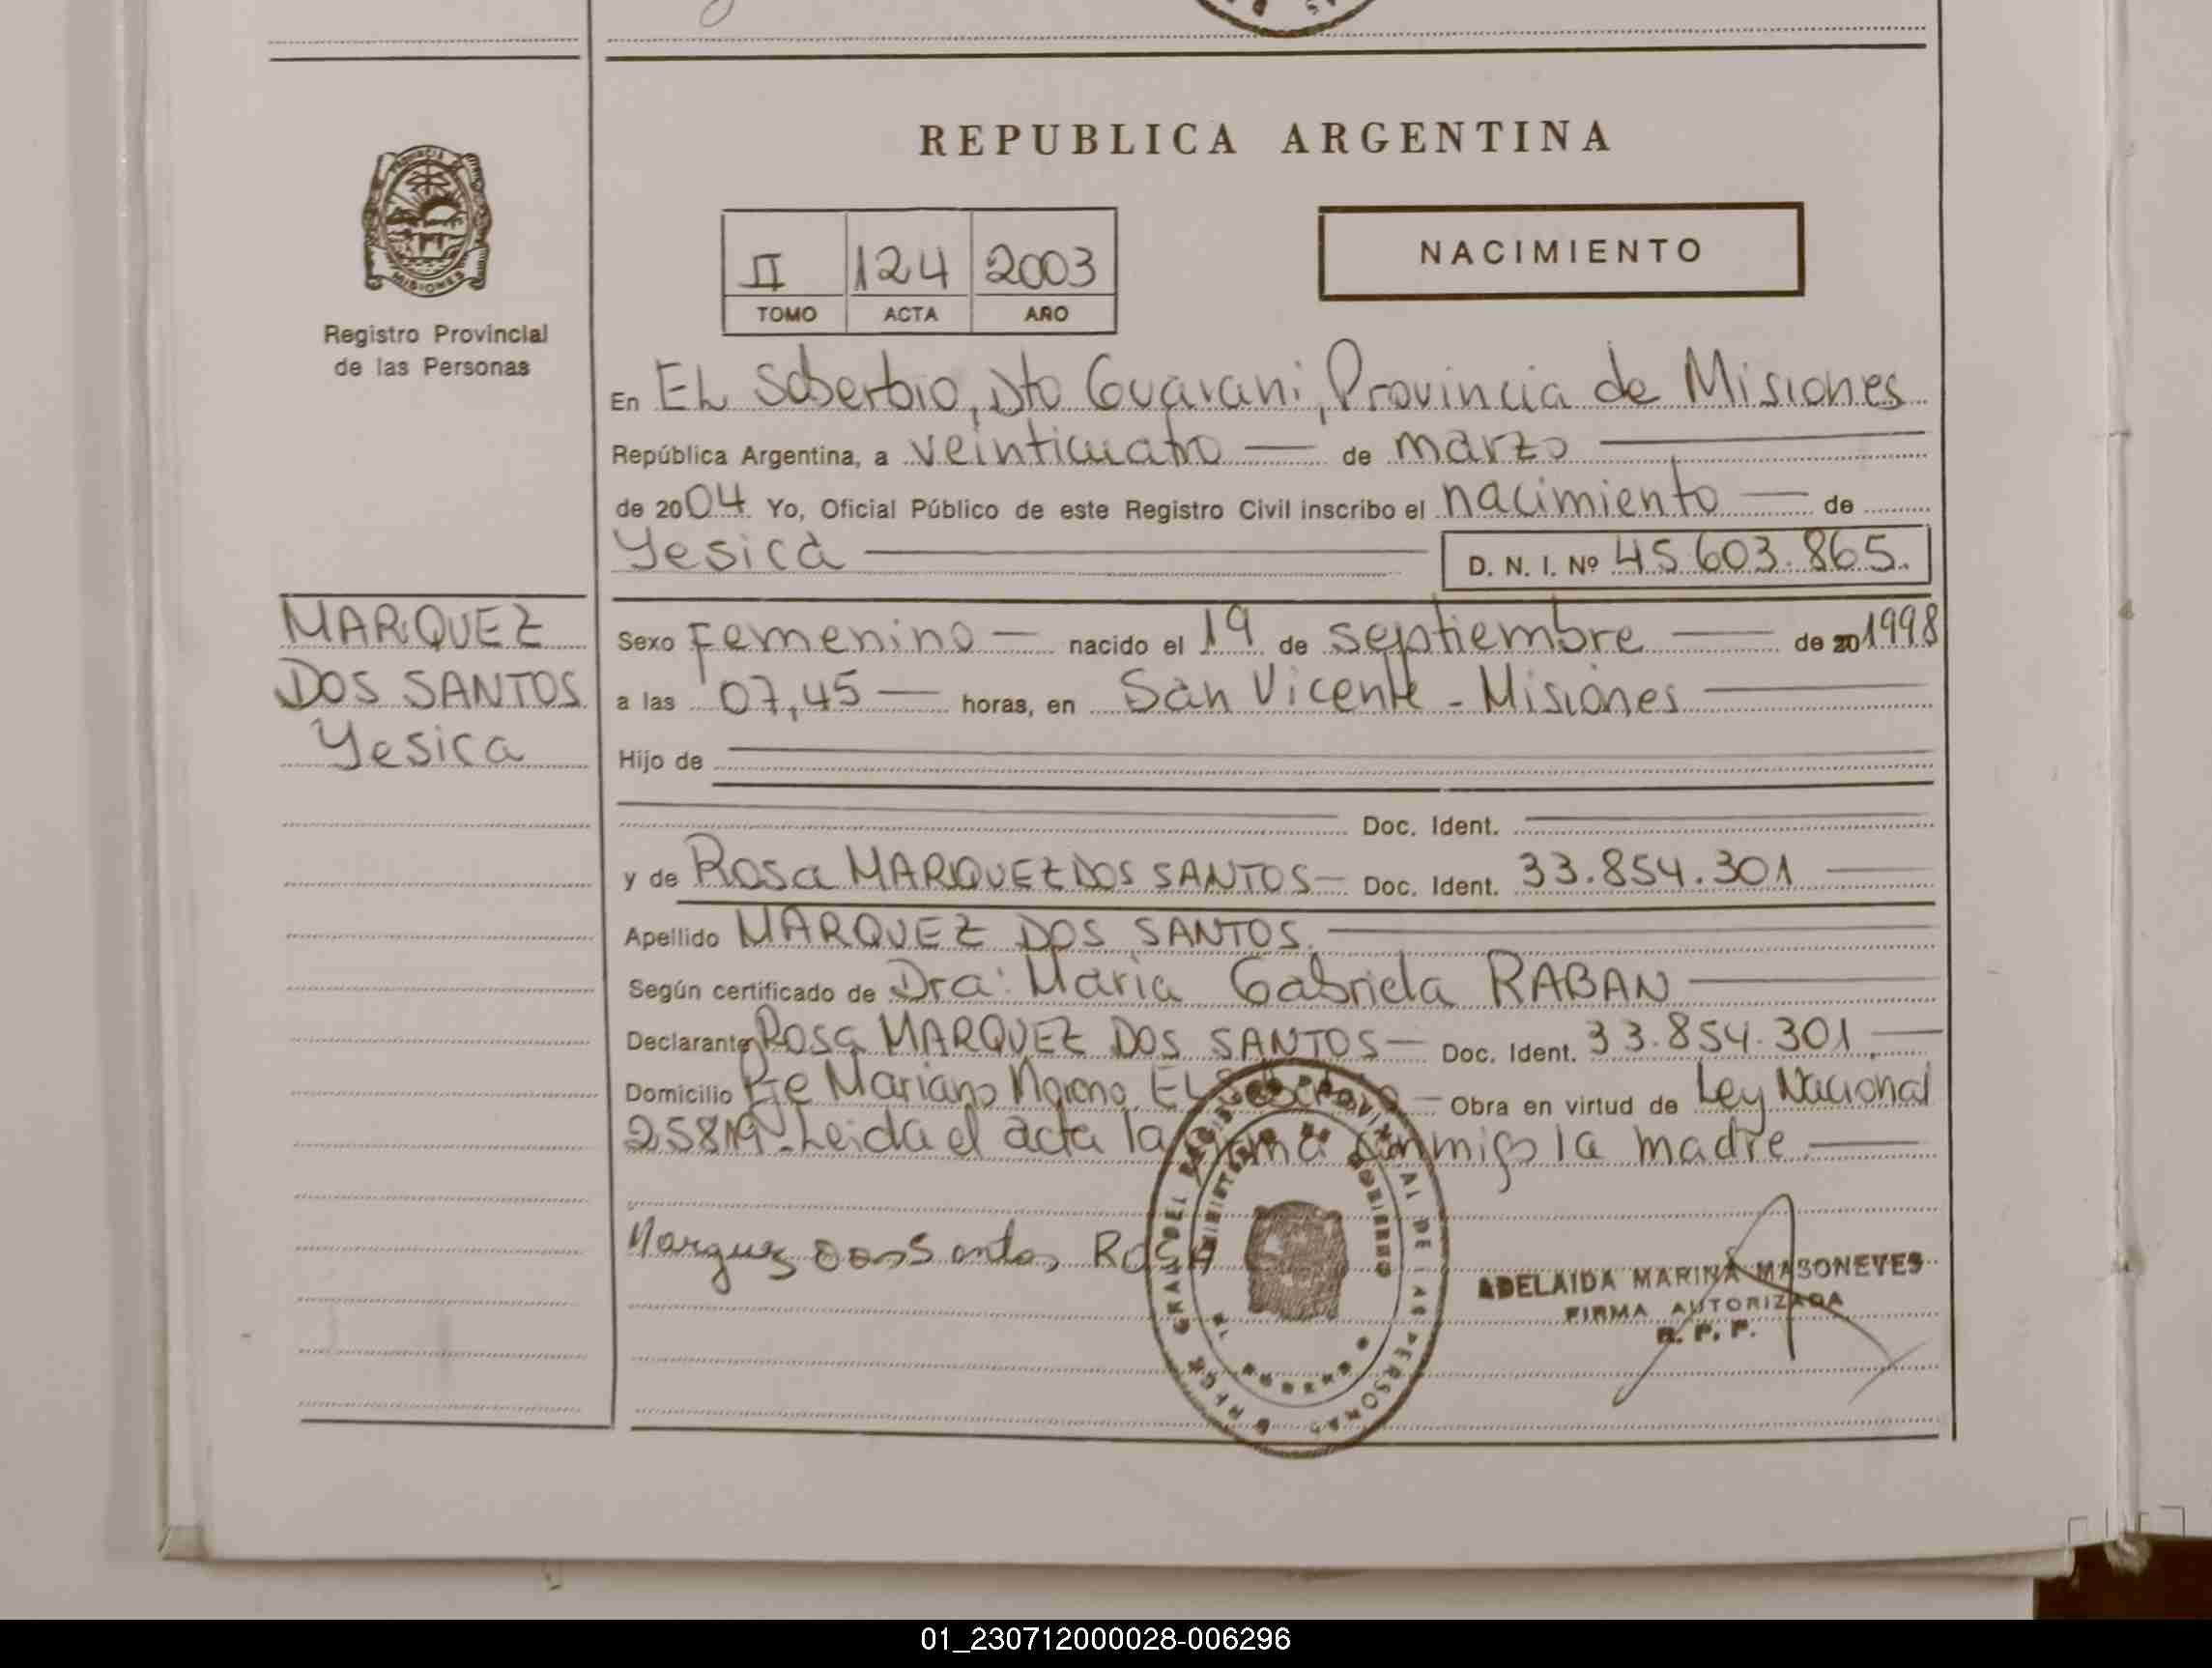 REPUBLICA ARGENTINA
PROVINCIA
MISIONES
Registro Provincial
de las Personas
II 124 2003
TOMO ACTA AÑO
NACIMIENTO
En EL Soberbio, Dto Guarani, Provincia de Misiones
República Argentina, a veinticuatro de marzo
de 2004 Yo, Oficial Público de este Registro Civil inscribo el nacimiento de
Yesica D. N. I. Nº 45.603.865.
MARQUEZ
DOS SANTOS
Yesica
Sexo Femenino nacido el 19 de septiembre de 20 1998
a las 07,45 horas, en San Vicente - Misiones
Hijo de
Doc. Ident.
y de Rosa MARQUEZ DOS SANTOS Doc. Ident. 33.854.301
Apellido MARQUEZ DOS SANTOS.
Según certificado de Dra: Maria Gabriela RABAN
Declarante Rosa MARQUEZ DOS SANTOS Doc. Ident. 33.854.301.
Domicilio Pje Mariano Moreno, EL Soberbio Obra en virtud de Ley Nacional
25819. Leida el acta la firma conmigo la madre.
Marquez Dos Santos, ROSA
ADELAIDA MARINA MASONEVES
FIRMA AUTORIZADA
R. P. P.
01_230712000028-006296